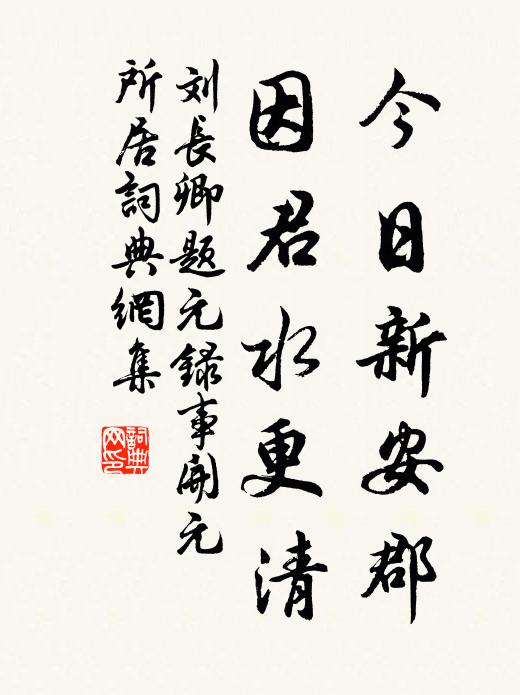 今日新安郡
因君水更清
刘長卿題元録事開元
所居詞典網集
詞典网印